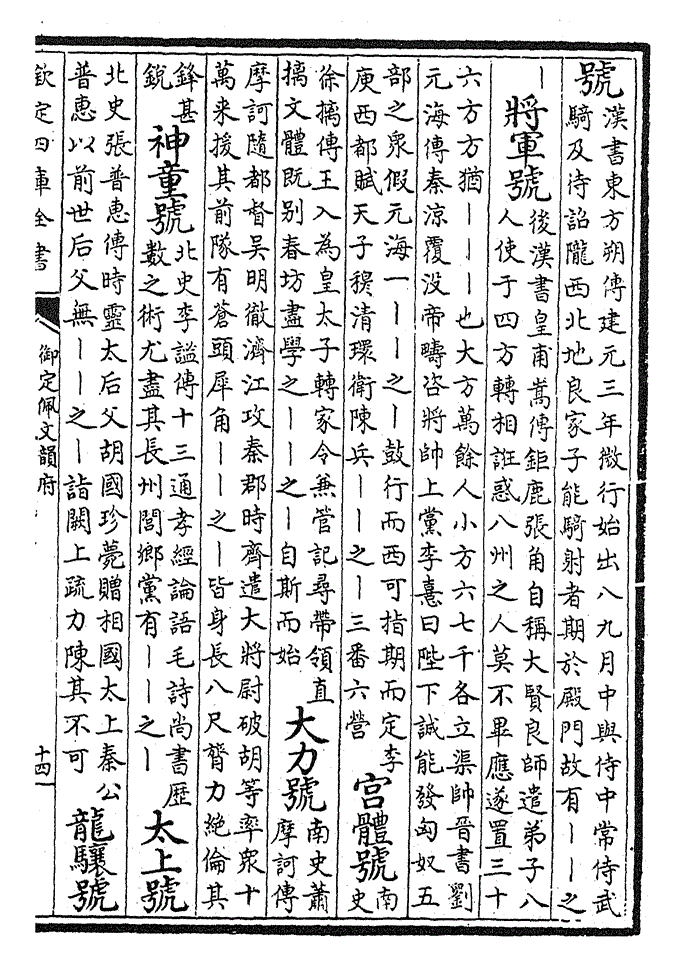 號漢書東方朔傳建元三年微行始出八九月中與侍中常侍武
騎及待詔隴西北地良家子能騎射者期於殿門故有｜｜之
｜
將軍號後漢書皇甫嵩傳鉅鹿張角自稱大賢良師遣弟子八
人使于四方轉相誑惑八州之人莫不畢應遂置三十
六方方猶｜｜｜也大方萬餘人小方六七千各立渠帥晉書劉
元海傳秦涼覆没帝疇咨將帥上黨李憙曰陛下誠能發匈奴五
部之衆假元海一｜｜之｜鼓行而西可指期而定李
庾西都賦天子穆清環衛陳兵｜｜之｜三番六營
宮體號南
史
徐摛傳王入為皇太子轉家令兼管記尋帶領直
摛文體既别春坊盡學之｜｜之｜自斯而始
大力號南史蕭
摩訶傳
摩訶隨都督吳明徹濟江攻秦郡時齊遣大將尉破胡等率衆十
萬来援其前隊有蒼頭犀角｜｜之｜皆身長八尺膂力絶倫其
鋒甚
銳
神童號北史李謐傳十三通孝經論語毛詩尚書歷
數之術尤盡其長州閭鄉黨有｜｜之｜
太上號
北史張普惠傳時靈太后父胡國珍薨贈相國太上秦公
普惠以前世后父無｜｜之｜詣闕上疏力陳其不可
龍驤號
欽定四庫全書
御定佩文韻府
十四